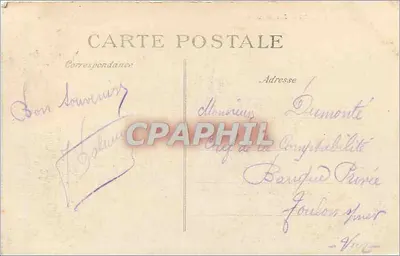 CARTE POSTALE
Correspondance
Adresse
Bon Souvenir
Monsieur Dumonté
Chef de la Comptabilité
Banque Privée
Toulon s/mer
- Var -
CPARHIL